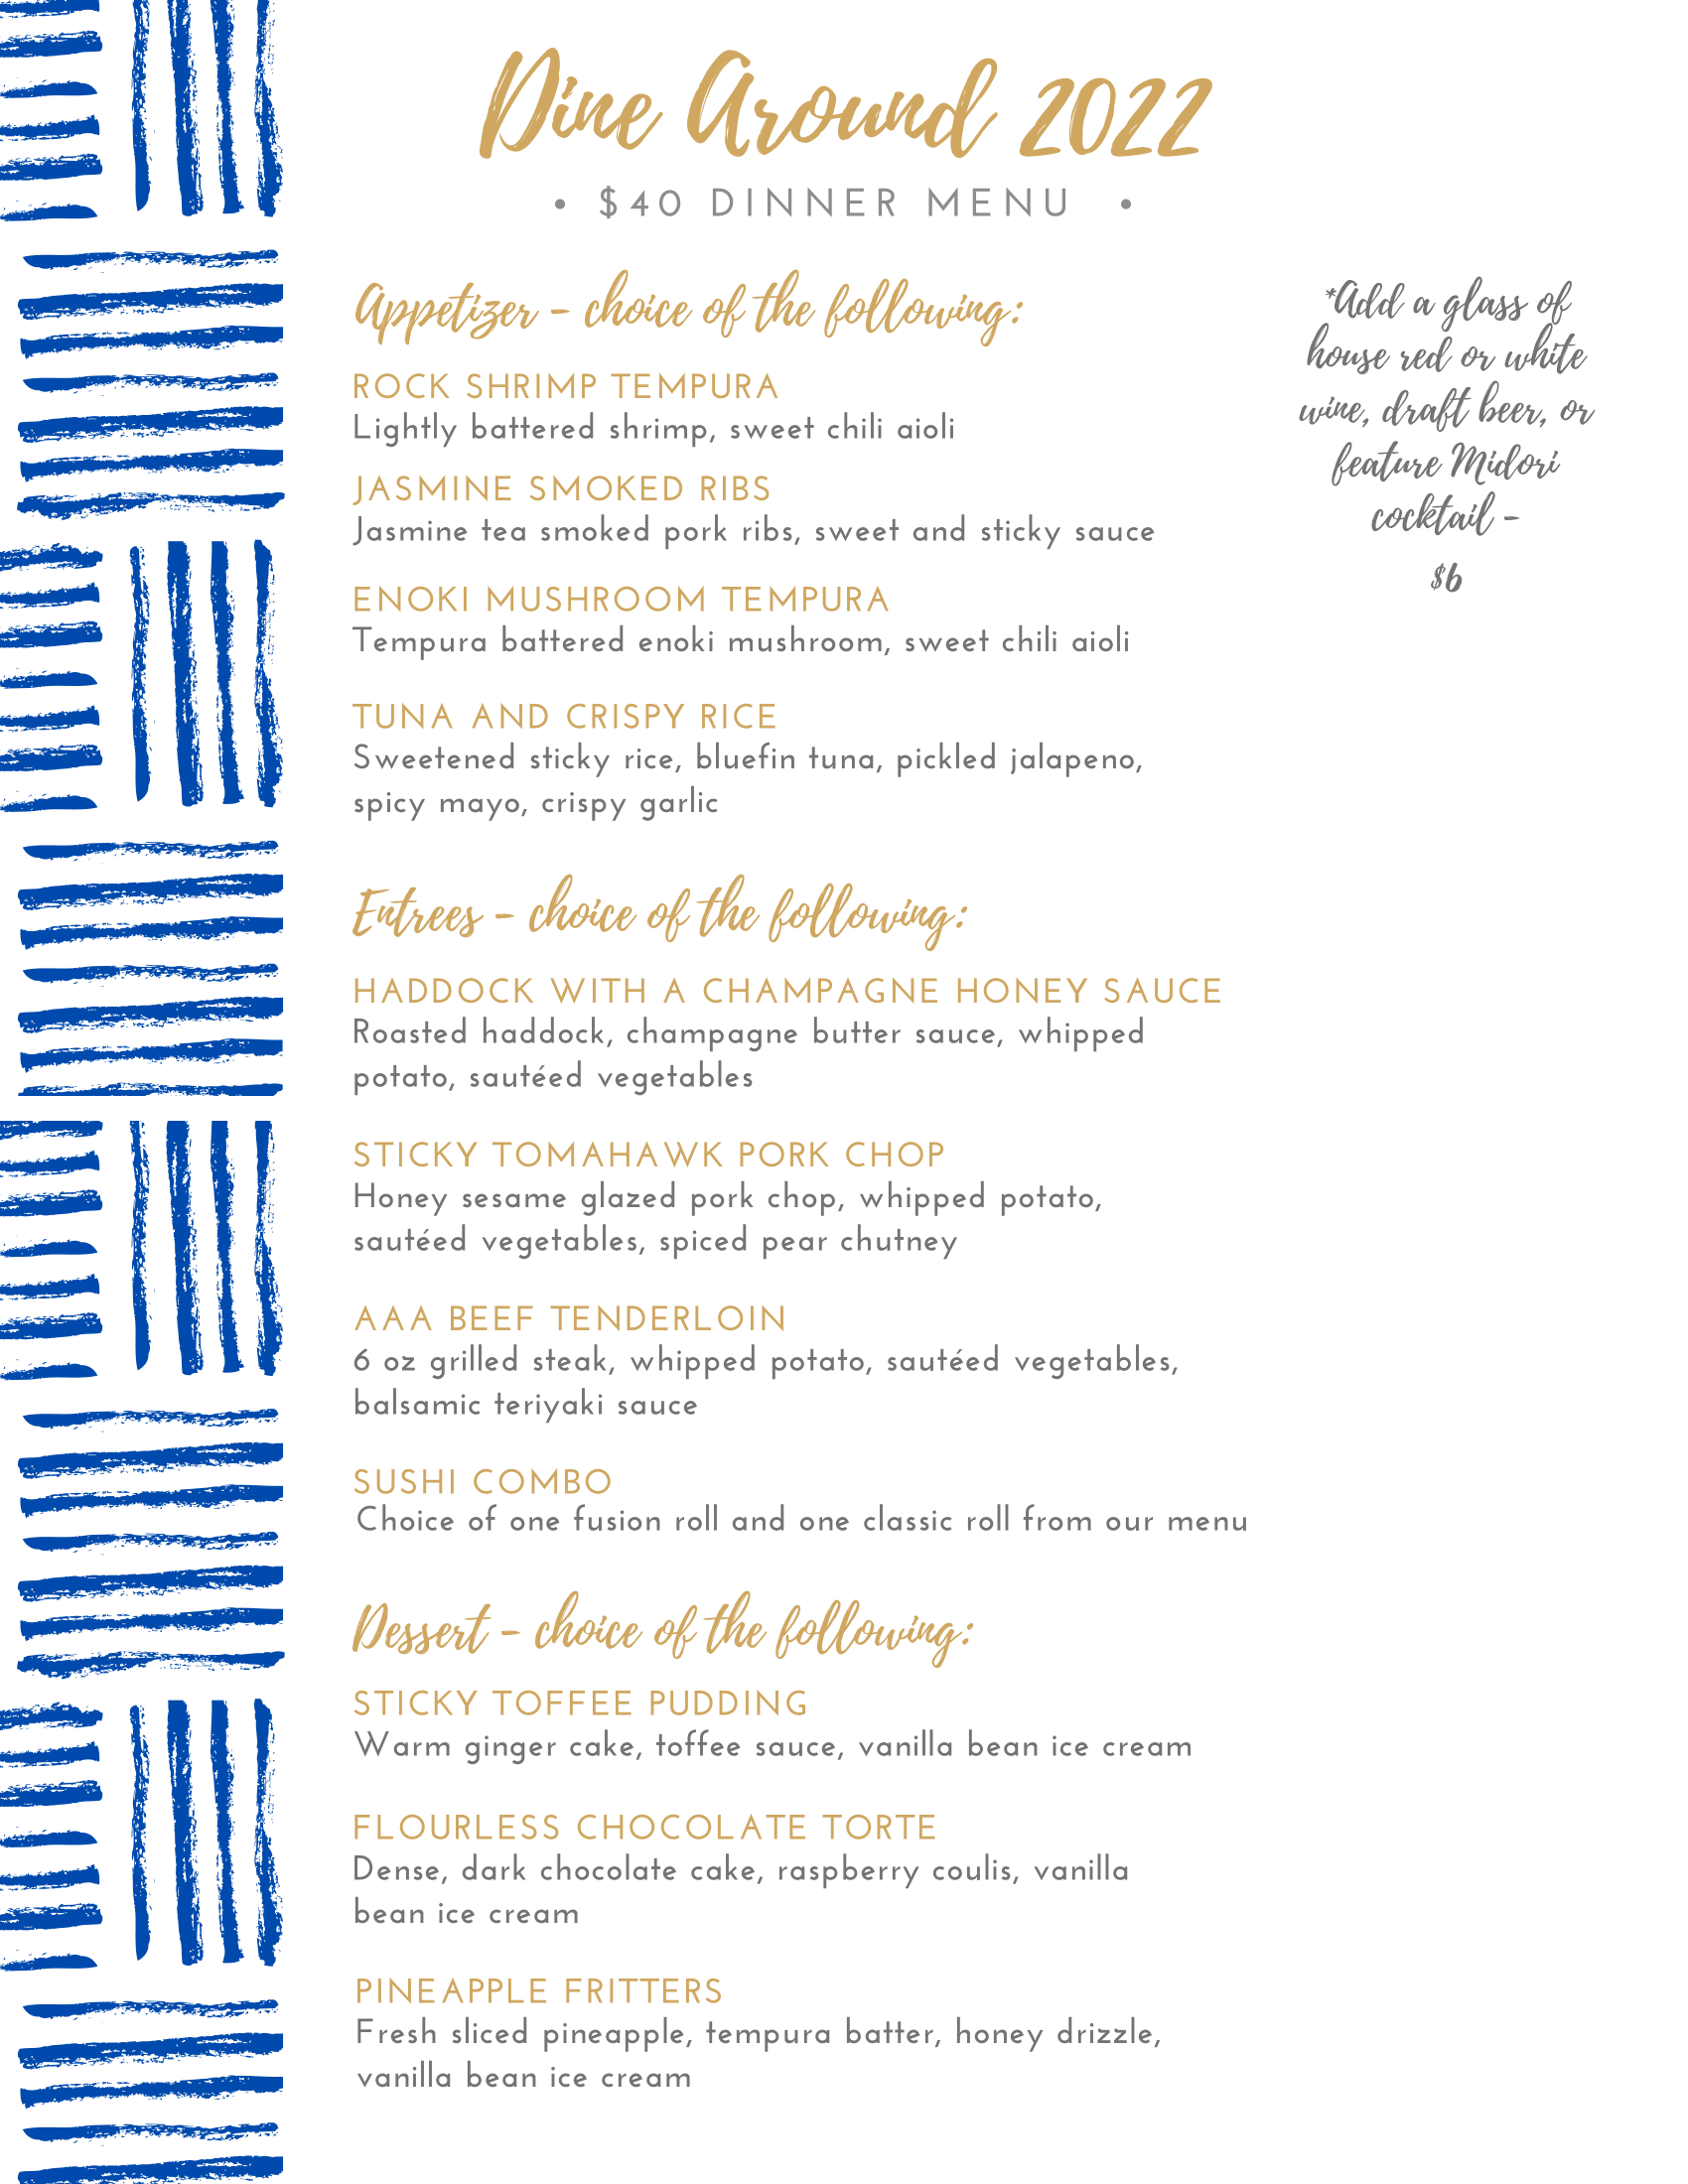 Dine Around 2022
• $40 DINNER MENU •
Appetizer - choice of the following:
ROCK SHRIMP TEMPURA
Lightly battered shrimp, sweet chili aioli
JASMINE SMOKED RIBS
Jasmine tea smoked pork ribs, sweet and sticky sauce
ENOKI MUSHROOM TEMPURA
Tempura battered enoki mushroom, sweet chili aioli
TUNA AND CRISPY RICE
Sweetened sticky rice, bluefin tuna, pickled jalapeno,
spicy mayo, crispy garlic
*Add a glass of
house red or white
wine, draft beer, or
feature Midori
cocktail -
$6
Entrees - choice of the following:
HADDOCK WITH A CHAMPAGNE HONEY SAUCE
Roasted haddock, champagne butter sauce, whipped
potato, sautéed vegetables
STICKY TOMAHAWK PORK CHOP
Honey sesame glazed pork chop, whipped potato,
sautéed vegetables, spiced pear chutney
AAA BEEF TENDERLOIN
6 oz grilled steak, whipped potato, sautéed vegetables,
balsamic teriyaki sauce
SUSHI COMBO
Choice of one fusion roll and one classic roll from our menu
Dessert - choice of the following:
STICKY TOFFEE PUDDING
Warm ginger cake, toffee sauce, vanilla bean ice cream
FLOURLESS CHOCOLATE TORTE
Dense, dark chocolate cake, raspberry coulis, vanilla
bean ice cream
PINEAPPLE FRITTERS
Fresh sliced pineapple, tempura batter, honey drizzle,
vanilla bean ice cream